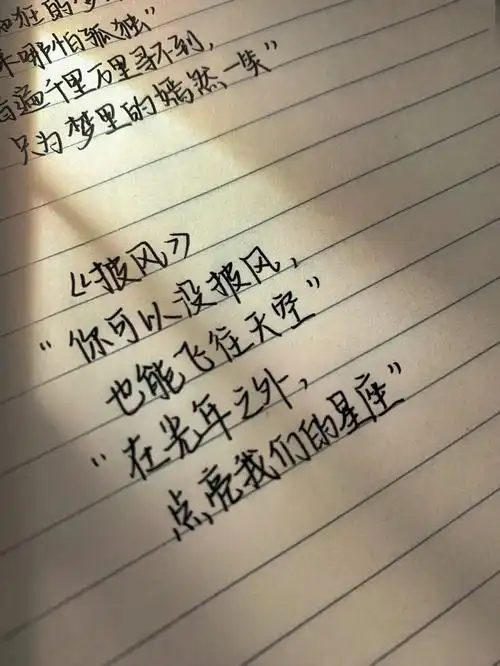 狂的
哪怕孤独”
遍千里万里寻不到,
只为梦里的嫣然一笑”
《披风》
“你可以没披风,
也能飞往天空”
“在光年之外,
点亮我们的星座”